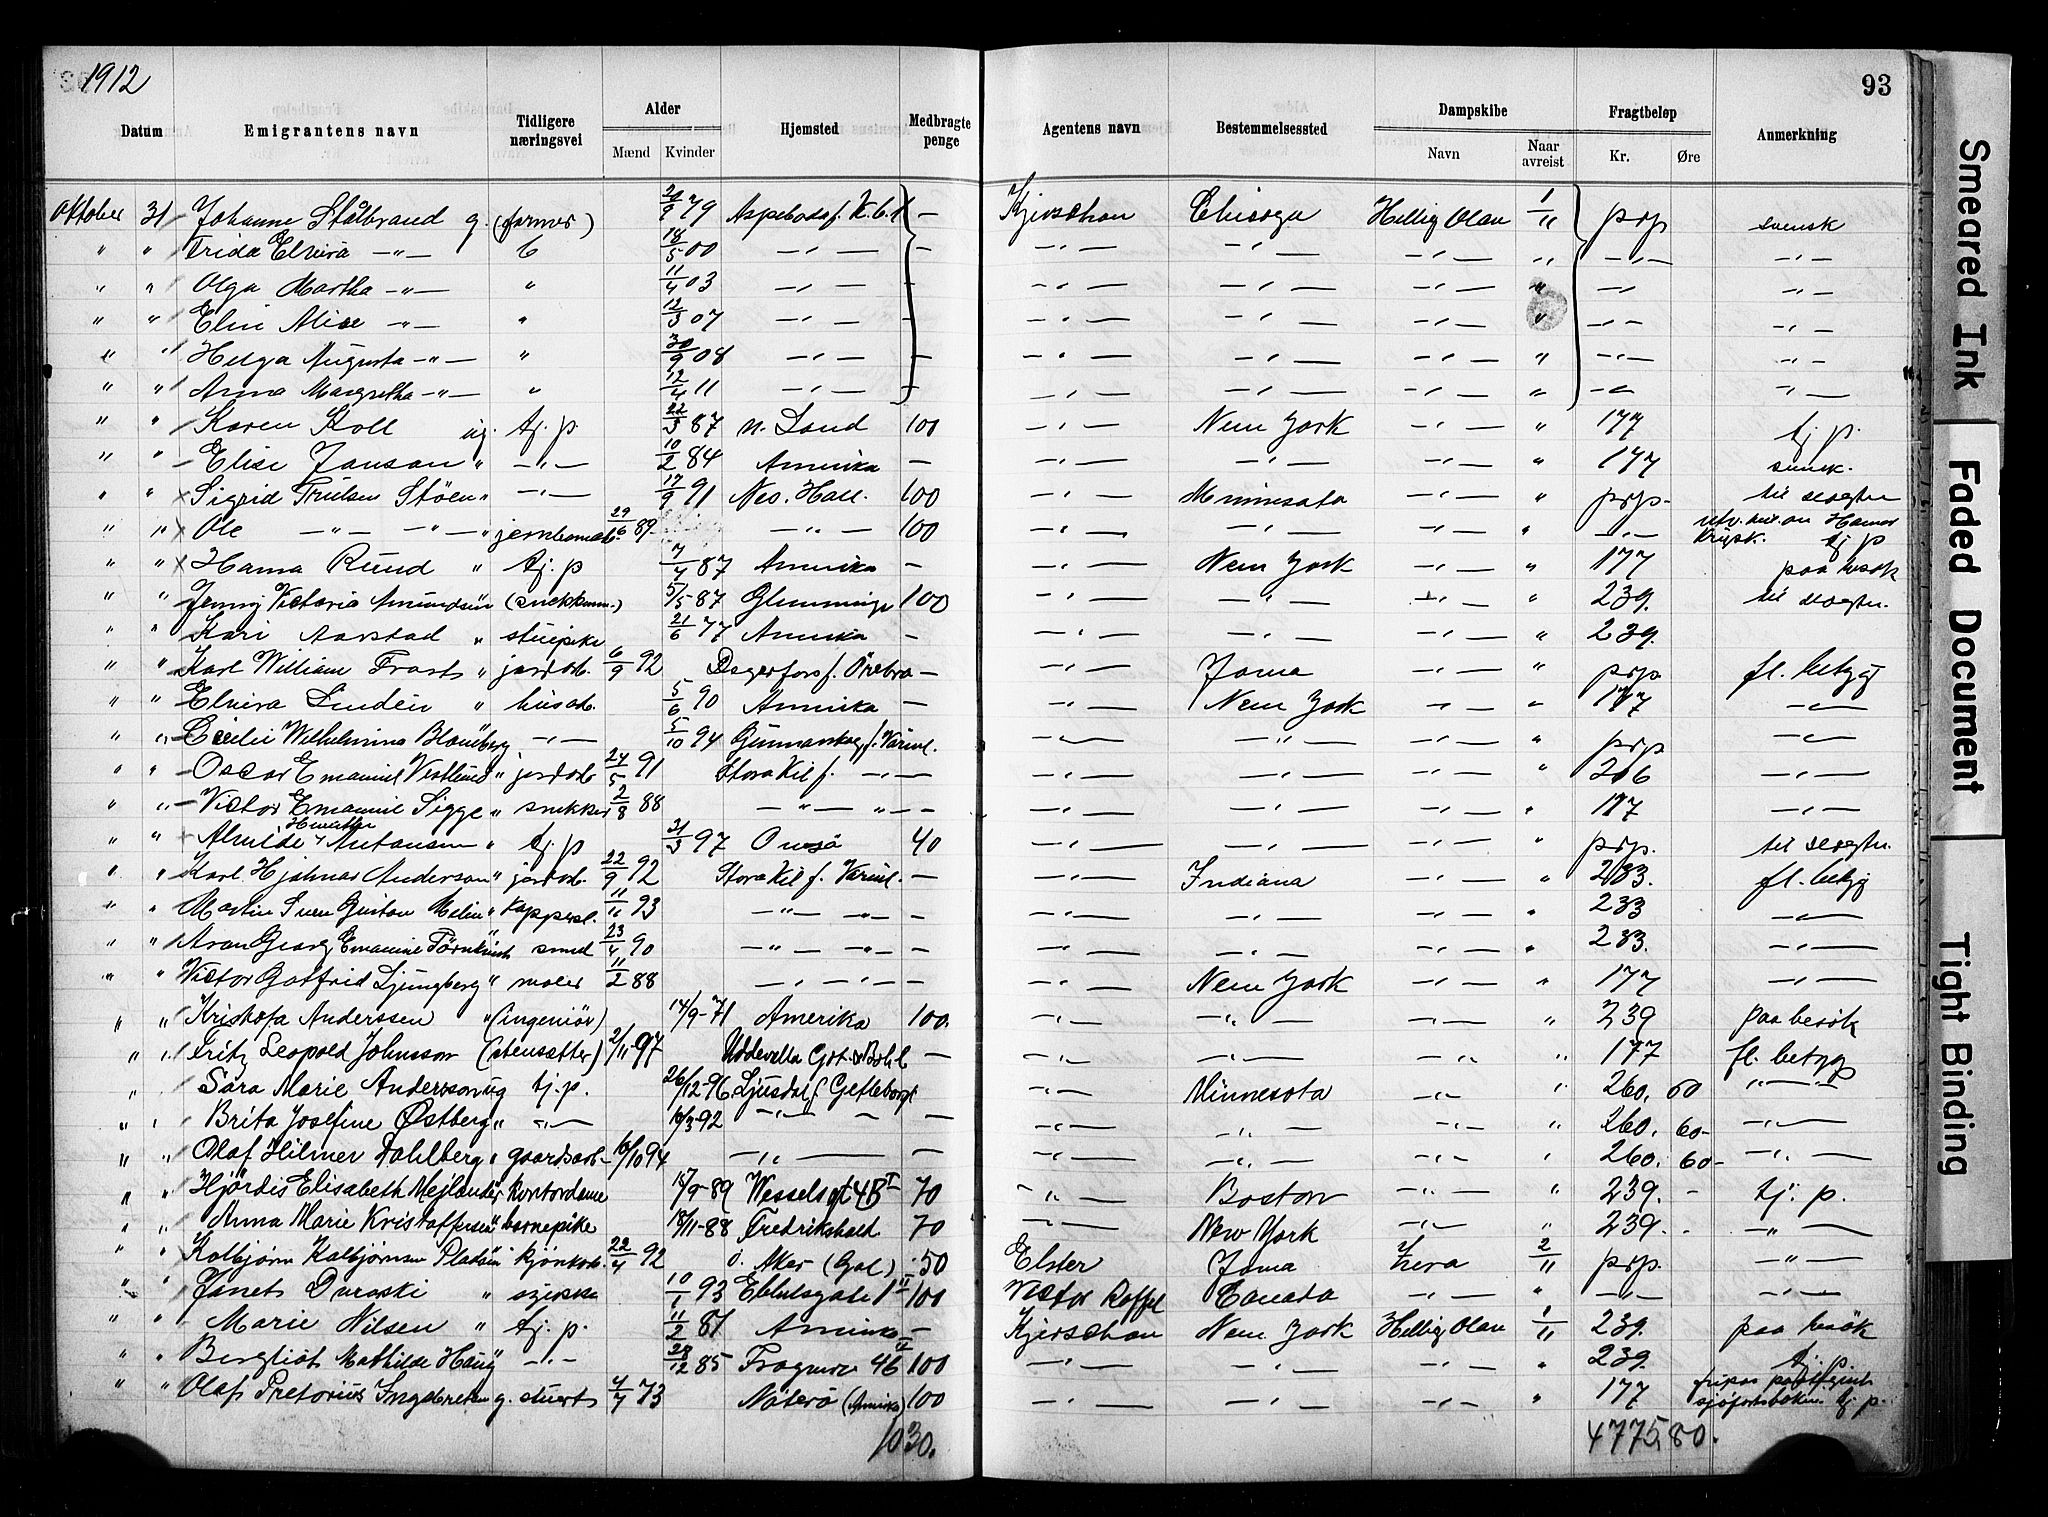 1912
93
Datum Emigrantens navn Tidligere næringsvei Alder Mænd Kvinder Hjemsted Medbragte penge Agentens navn Bestemmelsessted Dampskibe Navn Naar avreist Fragtbeløp Kr. Øre Anmerkning
Oktober 31 Johanne Stålbrand g. (farmer) 9 79 Kjerschow Chicago Hellig Olav 1/11 prp svensk
" " Frida Elvira —"— 18/5 00 —"— — —"— —"— —"— " —"— —"—
" " Olga Martha —"— " 11/4 03 —"— - —"— —"— —"— " —"— —"—
" " Elin Alice —"— " 12/3 07 —"— - —"— —"— —"— " —"— —"—
" " Helga Augusta —"— " 30/9 08 —"— - —"— —"— —"— " —"— —"—
" " Anna Margretha —"— " 12/4 11 —"— - —"— —"— —"— " —"— —"—
" " Karen Koll ug. tj. p 22/3 87 n. Land 100 —"— New York —"— " 177 tj. p.
" " Elise Janson " —"— 10/2 84 Amerika — —"— —"— —"— " 177 svensk.
" " Sigrid Trulsen Støen " —"— 17/9 91 Nes. Hall. 100 —"— Minnesota —"— " prp. til slægtn
" " Ole —"— —"— " 29/6 89 —"— 100 —"— —"— —"— " —"— Hamar tj p
" " Hanna Ruud " tj. p 7/4 87 Amerika - —"— New York —"— " 177 paa besøk
" " Jenny Victoria Amundsen (snekkerm.) 5/5 87 Glemminge 100 —"— —"— —"— " 239. til slægtn.
" " Kari Aarstad " stuepike 21/6 77 Amerika - —"— —"— —"— " 239.
" " Karl William Frast " jordarb. 6/9 92 Degerfors f. Örebro — —"— Jowa —"— " prp fl. betyg
" " Elvira Lindén " husarb. 5/6 90 Amerika — —"— New York —"— " 177 —"—
" " Cecilie Wilhelmina Blomberg —"— 5/10 94 Gunnarskog f. Värml. —"— —"— —"— " prp —"—
" " Oscar Emanuel Vestlund " jordarb 24/5 91 Stora Kil f. —"— — —"— —"— —"— " 216 —"—
" " Victor Emanuel Sigge " snekker 2/8 88 —"— " — — —"— —"— —"— " 177 —"—
" " Alvilde Antonsen " tj. p 31/3 97 Onsø 40 —"— —"— —"— " prp. til slægtn.
" " Karl Hjalmar Anderson " jordarb. 22/9 92 Stora Kil f. Värml. — —"— Indiana —"— " 233. fl. betyg
" " Martin Sven Gustav Melin " 11/11 93 —"— —"— — —"— —"— —"— " 233 —"—
" " Georg Emanuel " smed 23/4 90 —"— —"— — —"— —"— —"— " 233. —"—
" " Victor Gottfrid Ljungberg " maler 11/2 88 —"— —"— — —"— New York —"— " 177 —"—
" " Kristofa Anderssen " (ingeniør) 14/9-71 Amerika 100. —"— —"— —"— " 239 paa besøk
" " Fritz Leopold Johnsson (stensetter) 2/11-97 Uddevalla Göt. & Bohl — —"— —"— —"— " 177 fl. betyg
" " Sara Marie Andersson ug tj. p. 26/12-96 Ljusdal f Gefleborgs —"— Minnesota —"— " 260, 60 —"—
" " Brita Josefine Østberg " —"— 16/3-92 —"— — — —"— —"— —"— " 260. 60- —"—
" " Olaf Hilmer Dahlberg " gaardsarb- 19/10 94 —"— — —"— —"— —"— " 260. 60- —"—
" " Hjördis Elisabeth Mejlænder kontordame 15/9-89 Wesselsgt 4B I 70 —"— Boston —"— " 239. - tj. p.
" " Anna Marie Kristoffersen " barnepike 18/11-88 Fredrikshald 70 —"— New York —"— " 239. - —"—
" " Kolbjørn Kolbjørnsen Pladsen " 22/4 92 ö. Aker (Gol) 50 Elster Jowa 2/11 prp. —"—
" " Janet " 10/1 93 II 100 Victor Canada —"— " —"—
" " Marie Nilsen " tj. p. 11/2 87 Amerika — Kjerschow New York Hellig Olav 1/11 239. paa besøk
" " Bergliot Mathilde Haug " —"— 28/12 85 Frognerv 46 IV 100 —"— —"— —"— " 239. tj. p.
" " Olaf Pretorius Ingebretsen g. stuert 4/7 73 Nøterø (Amerika) 100 —"— —"— —"— " 177 tj p.
1030.
4775,80.
Smeared Ink
Faded Document
Tight Binding